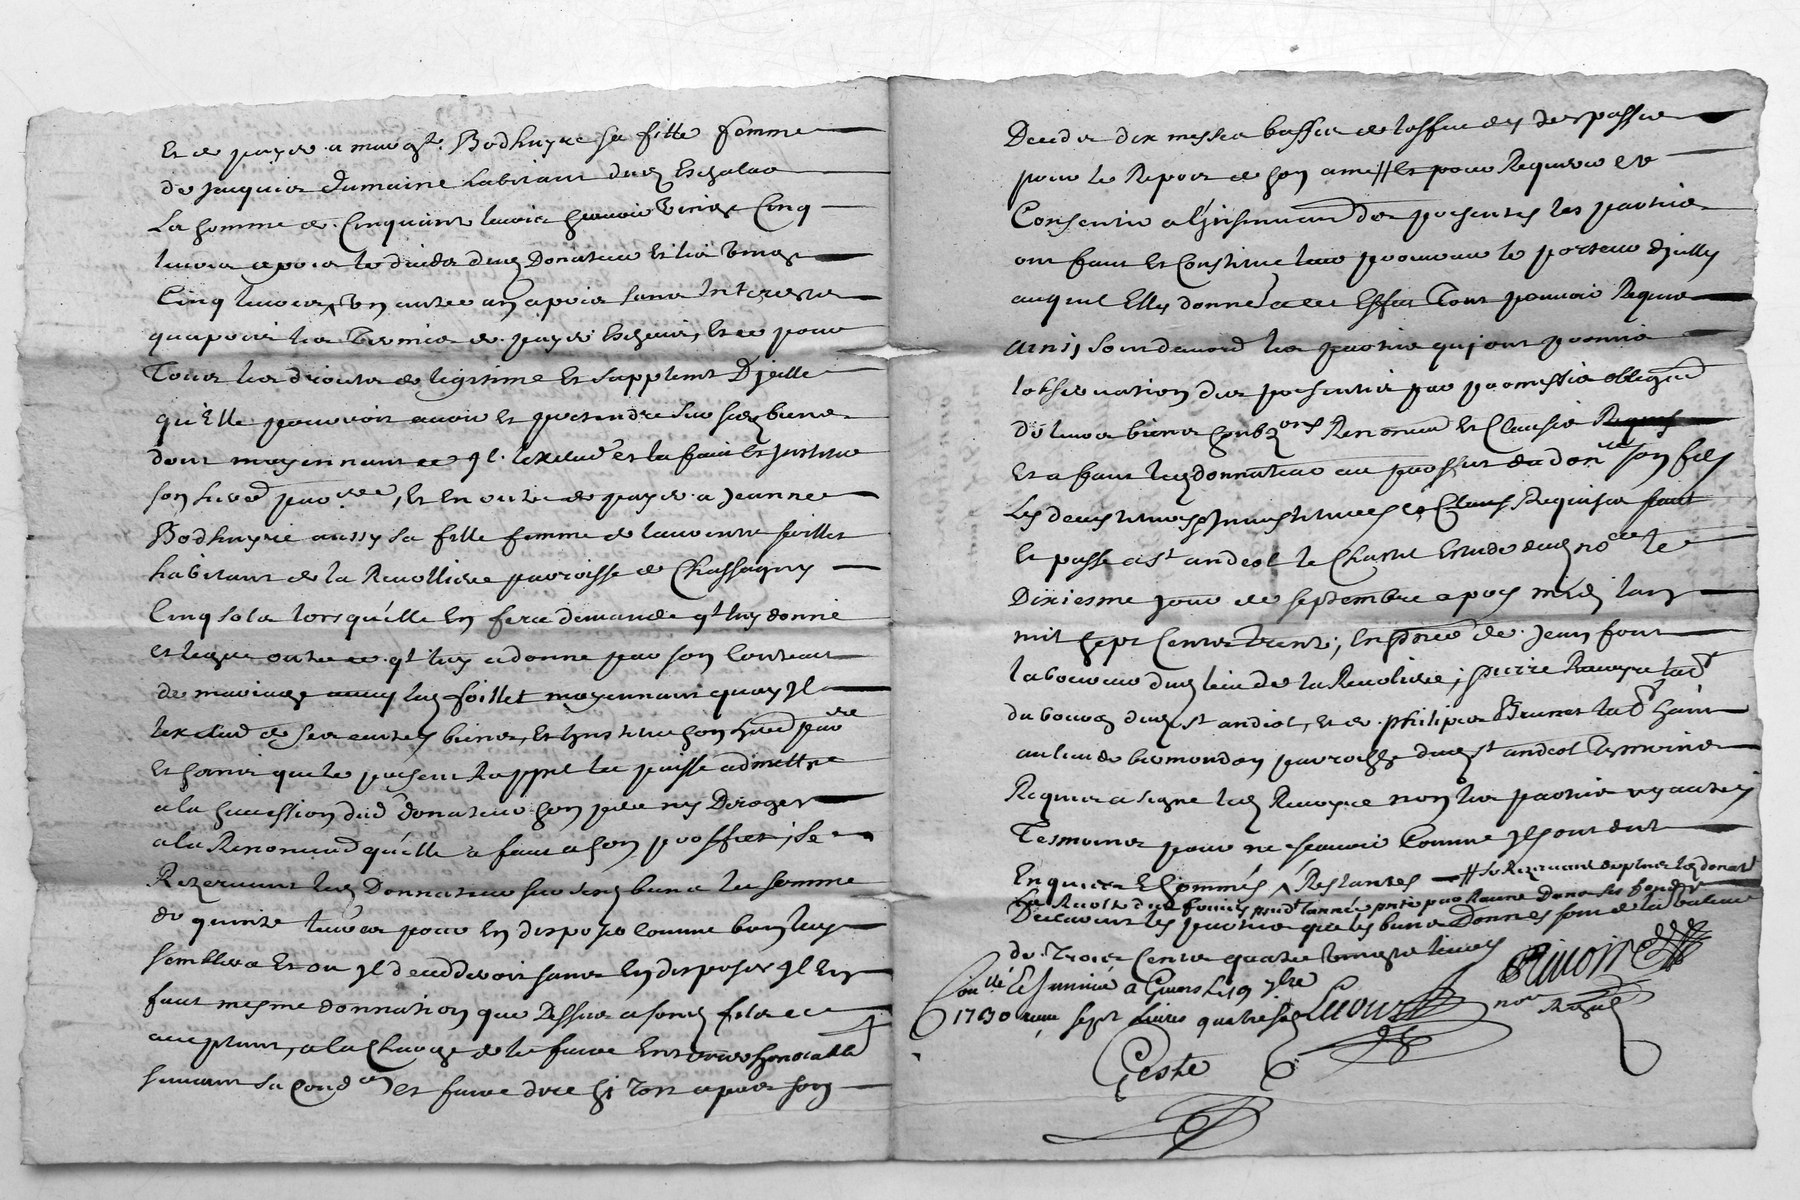 Et de payer a margte Bodhuyre sa fille femme
de Jacques dumaine habitant dud Eschalas
La somme de Cinquante livres scavoir vingt Cinq
livres apres le deces dud Donateur Et les vingt
Cinq livres un autre an apres sans Interests
qu'apres les termes de payer Escheus, Et ce pour
Tous les droits de legitime Et supplement D'jcelle
qu'Elle pourroit avoir et pretendre sur ses biens
dont moyennant ce jl l'exclud et la fait Et jnstitue
son hered parre, Et En outre de payer a Jeanne
Bodhuyre aussy sa fille femme de laurent foillet
habitant de la Revolliere parroisse de Chassagny
Cinq sols lors qu'elle En fera demande qt luy donne
et legue outre ce qt luy a donne par son Contract
de mariage avec led foillet moyennant quoy Jl
lexclud de ses autres biens, Et Jnstitue son hered parre
Et sans que le present Rappel la puisse admettre
a la succession dud donateur son pere ny Deroger
a la Renonciaon qu'elle a fait a son proffict; se
Rezervant led Donnateur sur sesd biens la somme
de quinze livres pour En disposer comme bon luy
semblera Et ou jl decedderoit sans En disposer jl En
fait mesme donnation que Dessus a sond fils ce
acceptant, a la Charge de le faire Enterrer honorablet
suivant sa Condon et faire dire si tost apres son
Deceds dix messes basses de loffice des trespasses
pour le Repos de son ame // Et pour Requerir et
Consentir a l'jnsinuaon des presentes les parties
ont fait Et Constitue leur procureur le porteur d'jcelles
auquel Elles donne a cet Effet Tout pouvoir Requis
ainsj Sont demeurd les parties quj ont promis
lobservation des presentes par promesses obligaon
de leurs biens soubzons Renonciaon Et Clauses
Et a fait led donnateur au proffict dud donre son fils
Les devestitures Jnvestitures et Clauses Requises fait
Et passe a st andeol le Chastel Estude dud nore le
Dixiesme jour de septembre apres midy lan
mil sept Cents trente; En pnce de Jean font
laboureur dud lieu de la Revoliere; pierre Ravoyre labr
du bourg dud st andeol, et de philipes Brunet labr
au lieu de bermondon parroisse dud st andeol tesmoins
Requis a signe led Ravoyre non les parties ny autres
Tesmoins pour ne scavoir Comme jls ont dit
Enquis Et sommés Restantes — // se Rezervant de plus led donatr
La Recolte dud fonds pendt lannée
Declarant les parties que les biens Donnes sont de la valeur
de Trois Cents quatre vingts livres
Conllé Et Jnsinué a Givors le 19 7bre
1730 receu sept Livres quatre sols
Geste
nore
Royal